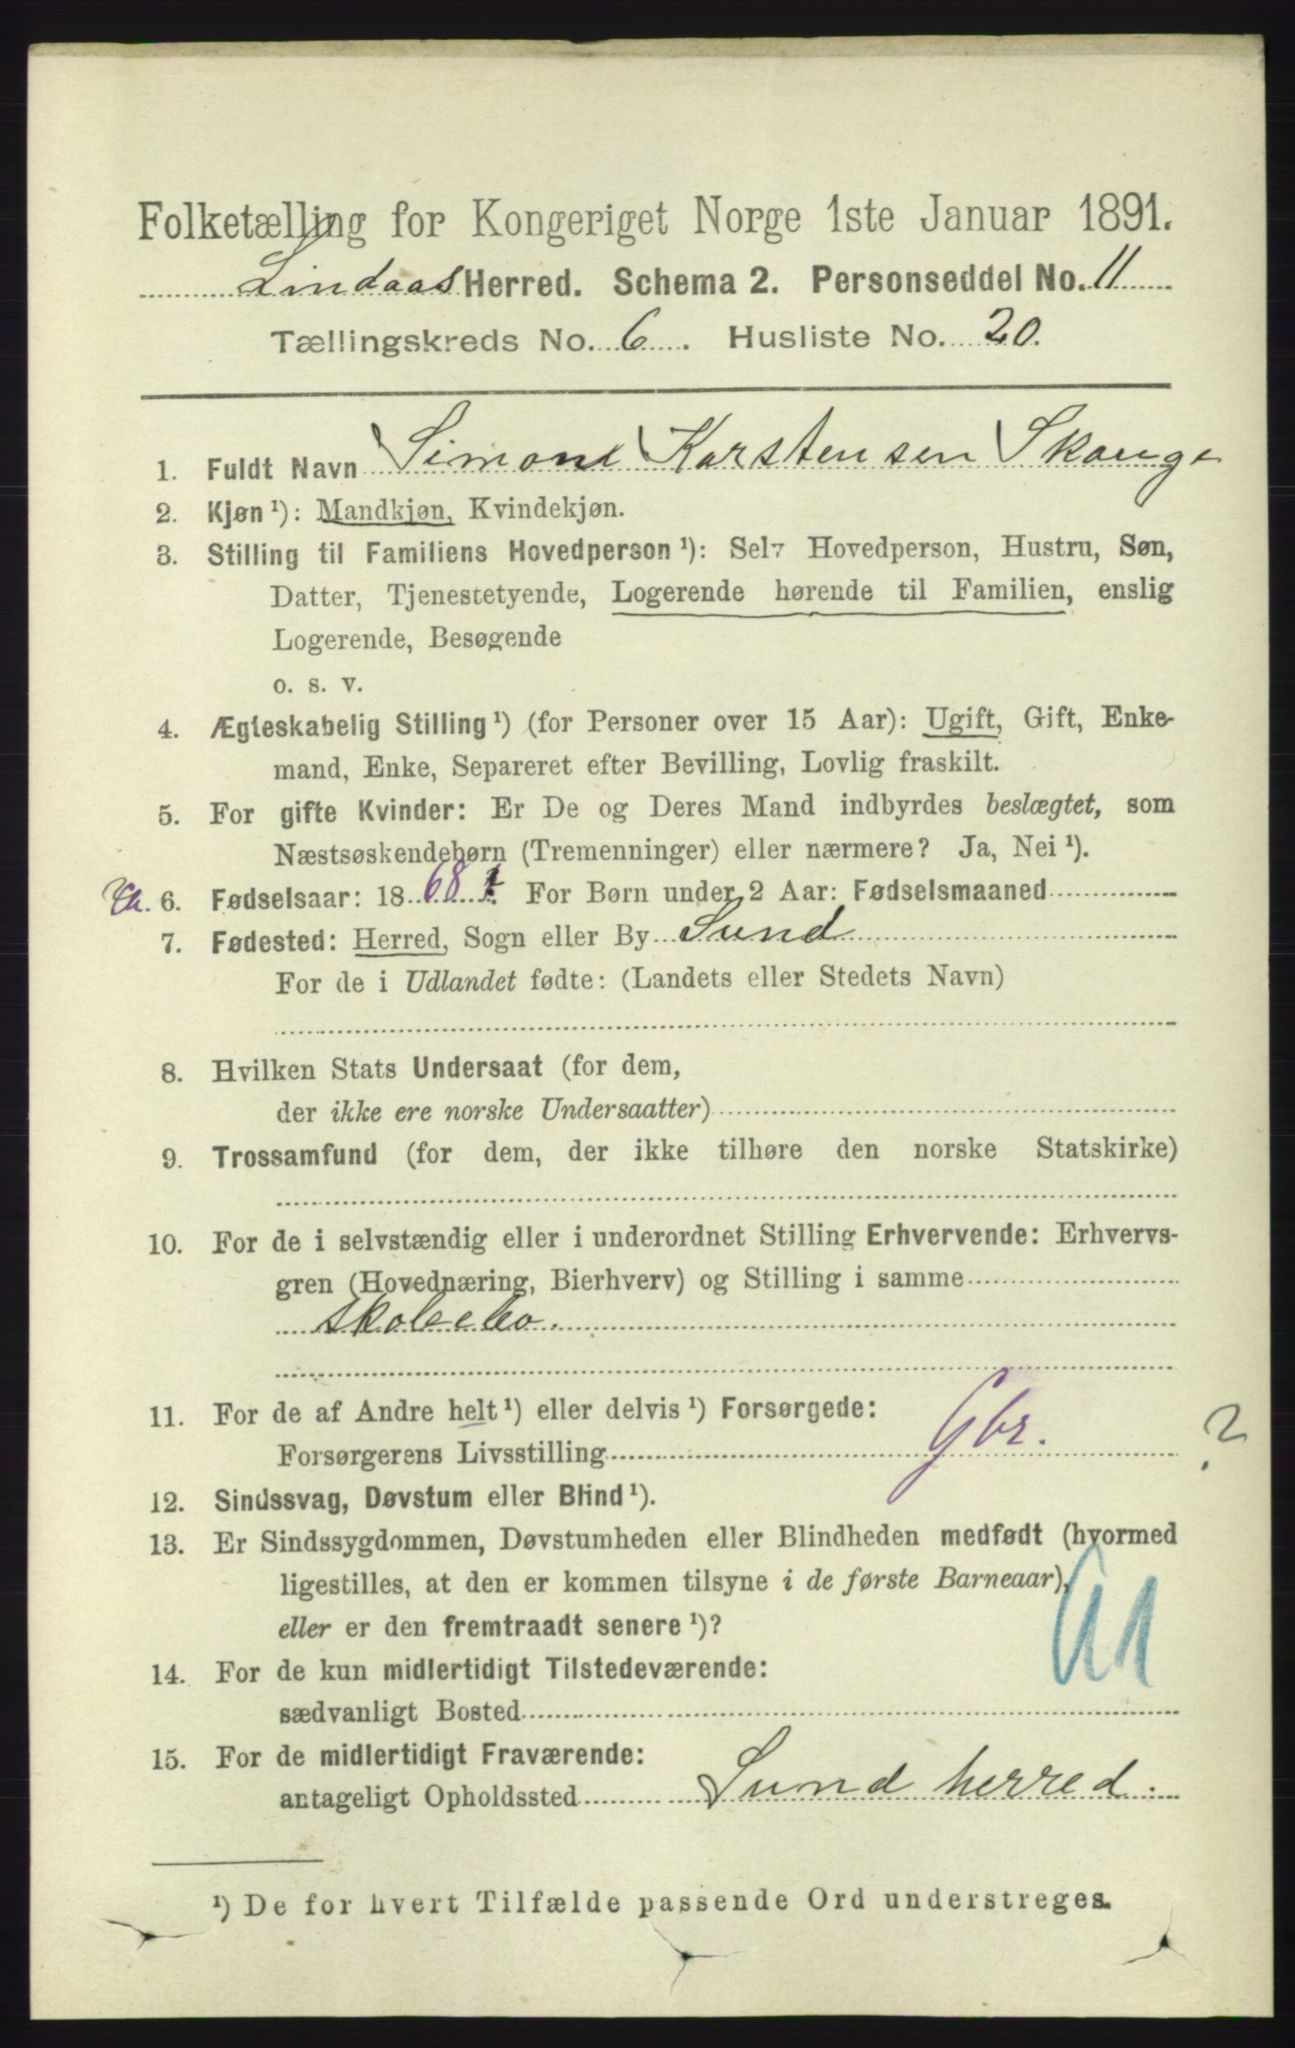 Folketælling for Kongeriget Norge 1ste Januar 1891.
Lindaas Herred. Schema 2. Personseddel No. 11
Tællingskreds No. 6. Husliste No. 20.
1. Fuldt Navn Simone Karstensen Skauge
2. Kjøn ¹): Mandkjøn, Kvindekjøn.
3. Stilling til Familiens Hovedperson ¹): Selv Hovedperson, Hustru, Søn,
Datter, Tjenestetyende, Logerende hørende til Familien, enslig
Logerende, Besøgende
o. s. v.
4. Ægteskabelig Stilling ¹) (for Personer over 15 Aar): Ugift, Gift, Enke-
mand, Enke, Separeret efter Bevilling, Lovlig fraskilt.
5. For gifte Kvinder: Er De og Deres Mand indbyrdes beslægtet, som
Næstsøskendebørn (Tremenninger) eller nærmere? Ja, Nei ¹).
6. Fødselsaar: 18 68 For Børn under 2 Aar: Fødselsmaaned
7. Fødested: Herred, Sogn eller By Sund
For de i Udlandet fødte: (Landets eller Stedets Navn)
8. Hvilken Stats Undersaat (for dem,
der ikke ere norske Undersaatter)
9. Trossamfund (for dem, der ikke tilhøre den norske Statskirke)
10. For de i selvstændig eller i underordnet Stilling Erhvervende: Erhvervs-
gren (Hovednæring, Bierhverv) og Stilling i samme
11. For de af Andre helt ¹) eller delvis ¹) Forsørgede:
Forsørgerens Livsstilling Gbr. ?
12. Sindssvag, Døvstum eller Blind ¹).
13. Er Sindssygdommen, Døvstumheden eller Blindheden medfødt (hvormed
ligestilles, at den er kommen tilsyne i de første Barneaar),
eller er den fremtraadt senere ¹)?
14. For de kun midlertidigt Tilstedeværende:
sædvanligt Bosted
15. For de midlertidigt Fraværende:
antageligt Opholdssted Sund herred.
¹) De for hvert Tilfælde passende Ord understreges.